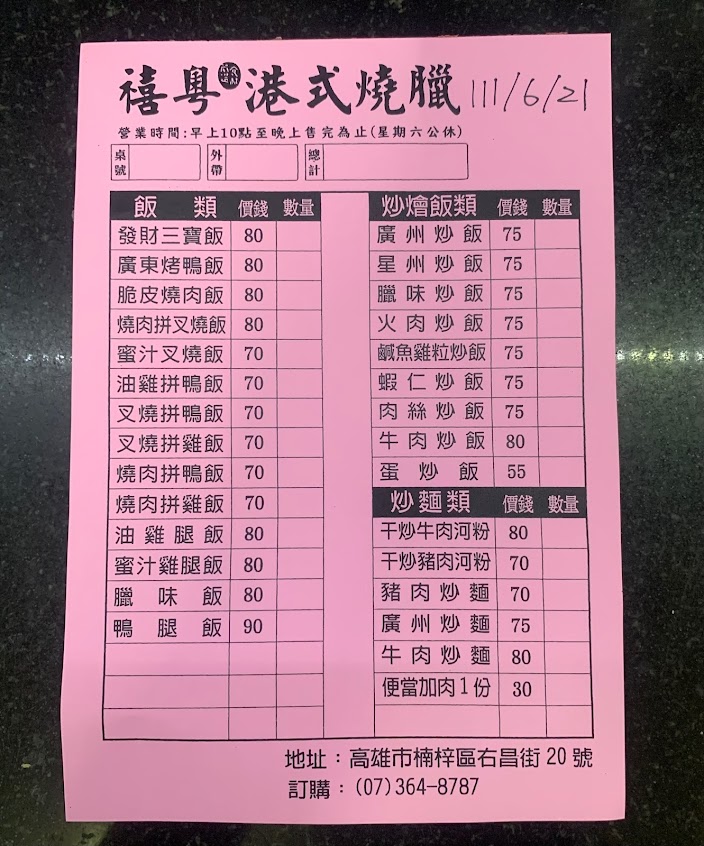 禧粤 港式燒臘 111/6/21
營業時間:早上10點至晚上售完為止(星期六公休)
桌號 外帶 總計
飯類 價錢 數量
發財三寶飯 80
廣東烤鴨飯 80
脆皮燒肉飯 80
燒肉拼叉燒飯 80
蜜汁叉燒飯 70
油雞拼鴨飯 70
叉燒拼鴨飯 70
叉燒拼雞飯 70
燒肉拼鴨飯 70
燒肉拼雞飯 70
油雞腿飯 80
蜜汁雞腿飯 80
臘味飯 80
鴨腿飯 90
炒燴飯類 價錢 數量
廣州炒飯 75
星州炒飯 75
臘味炒飯 75
火肉炒飯 75
鹹魚雞粒炒飯 75
蝦仁炒飯 75
肉絲炒飯 75
牛肉炒飯 80
蛋炒飯 55
炒麵類 價錢 數量
干炒牛肉河粉 80
干炒豬肉河粉 70
豬肉炒麵 70
廣州炒麵 75
牛肉炒麵 80
便當加肉1份 30
地址：高雄市楠梓區右昌街20號
訂購：(07)364-8787